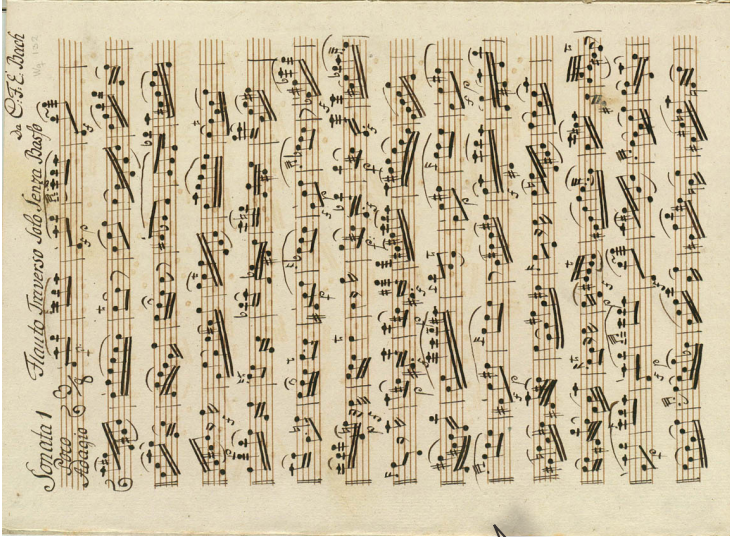 Sonata 1 Flauto Traverso Solo Senza Basso
da C. F. E. Bach
Wq 132
Poco
Adagio
3
8